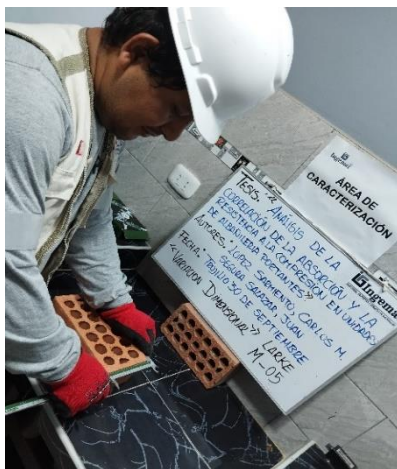 Ingemat
ÁREA DE
CARACTERIZACIÓN
Ingema
TESIS: "ANÁLISIS DE LA
CORRELACIÓN DE LA ABSORCIÓN Y LA
RESISTENCIA A LA COMPRESIÓN EN UNIDADES
DE ALBAÑILERIA PORTANTES"
AUTORES: LOPEZ SARMIENTO, CARLOS M.
SEGURA SALAZAR, JUAN
FECHA: TRUJILLO 30 DE SEPTIEMBRE
"VARIACION DIMENSIONAL" LARKE
M-05